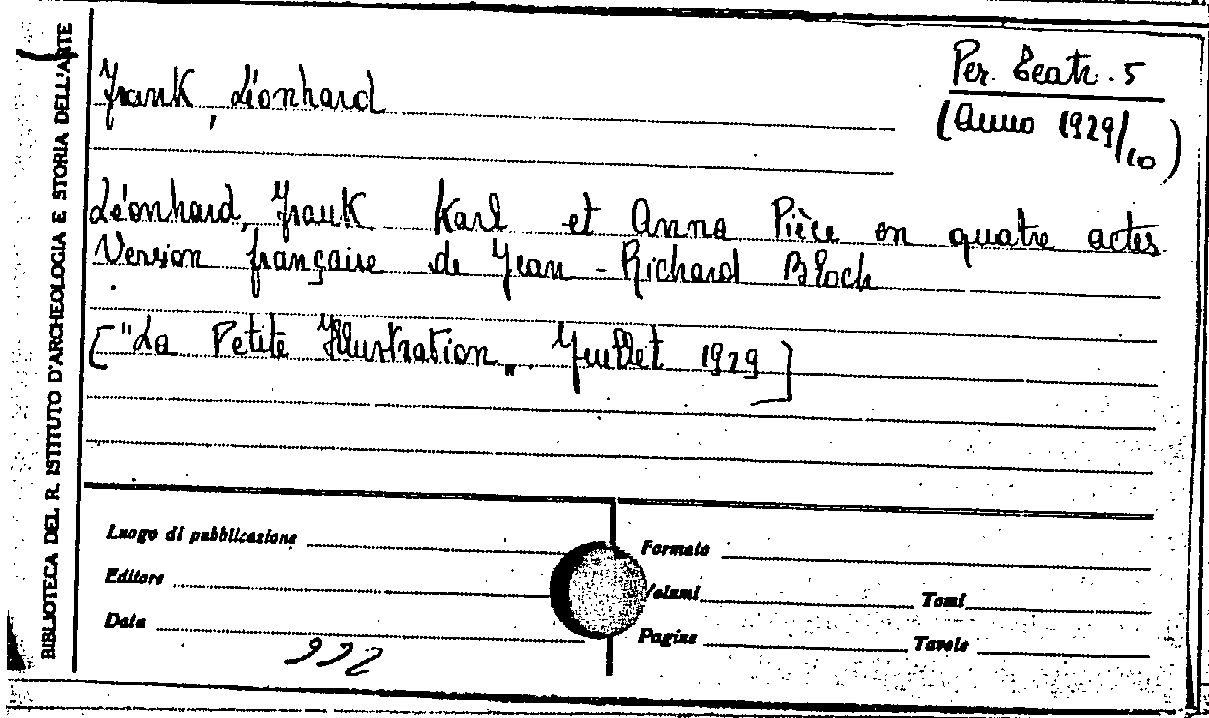 BIBLIOTECA DEL R. ISTITUTO D'ARCHEOLOGIA E STORIA DELL'ARTE
Frank, Léonhard
Per. Teatr. 5
(Anno 1929/10)
Léonhard, Frank Karl et Anna Pièce en quatre actes
Version française de Jean-Richard Bloch
["La Petite Illustration„. Juillet 1929]
Luogo di pubblicazione
Editore
Data
Formato
Volumi
Tomi
Pagine
Tavole